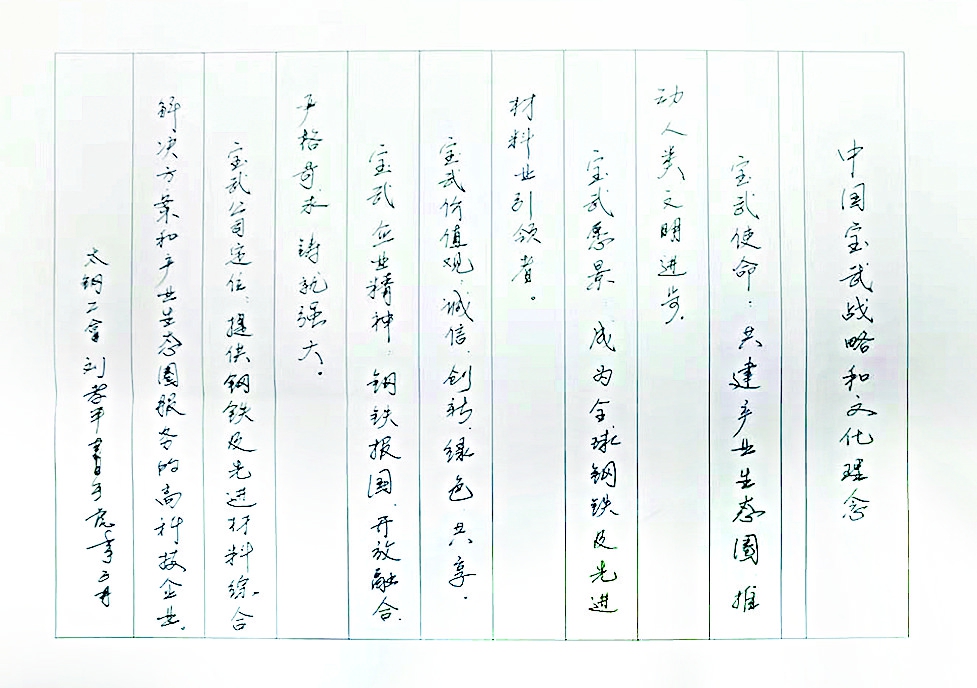 中国宝武战略和文化理念
宝武使命：共建产业生态圈 推
动人类文明进步.
宝武愿景 成为全球钢铁及先进
材料业引领者。
宝武价值观：诚信.创新.绿色.共享.
宝武企业精神：钢铁报国.开放融合.
严格苛求.铸就强大。
宝武公司定位：提供钢铁及先进材料综合
解决方案和产业生态圈服务的高科技企业.
太钢二 刘 平书于虎年